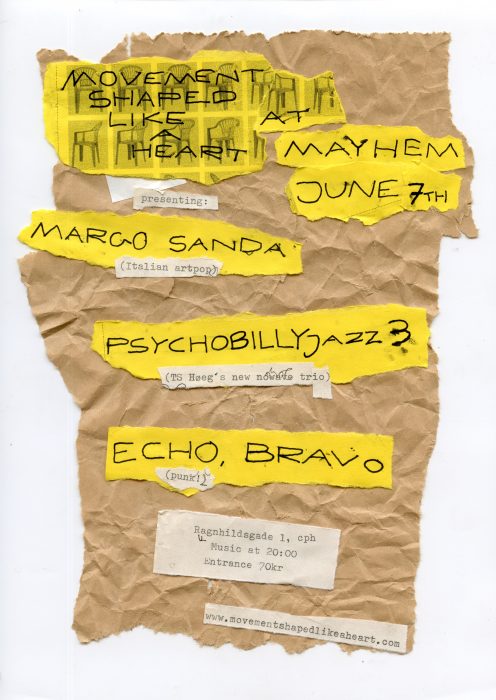 MOVEMENT
SHAPED
LIKE
A
HEART
AT
MAYHEM
JUNE 7TH
presenting:
MARGO SANDA
(Italian artpop)
PSYCHOBILLYJAZZ 3
(TS Høeg's new nowave trio)
ECHO, BRAVO
(punk!)
Ragnhildsgade 1, cph
Music at 20:00
Entrance 70kr
www.movementshapedlikeaheart.com